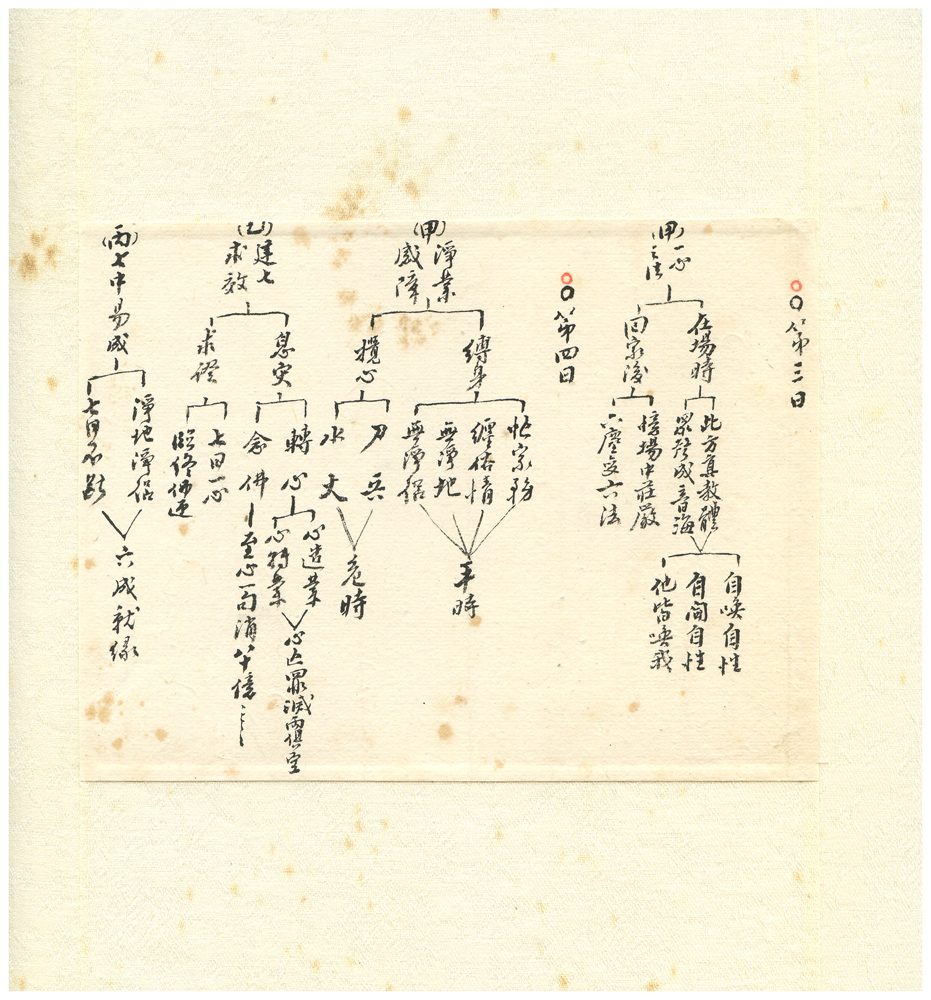 ○○第三日
(甲)一心
二法
在場時
此方真教體
眾發成音海
自喚自性
自聞自性
他皆喚我
回家後
憶場中莊嚴
六塵變六法
○○第四日
(甲)淨業
感障
縛身
忙家務
纏俗情
無淨地
無淨侶
平時
攪心
刀兵
水火
危時
(乙)建七
求效
息災
轉心
心造業
心轉業
心亡罪滅兩俱空
念佛
至心一句消八十億
求證
七日一心
臨終佛迎
(丙)七中易成
淨地淨侶
七日不斷
六成就緣